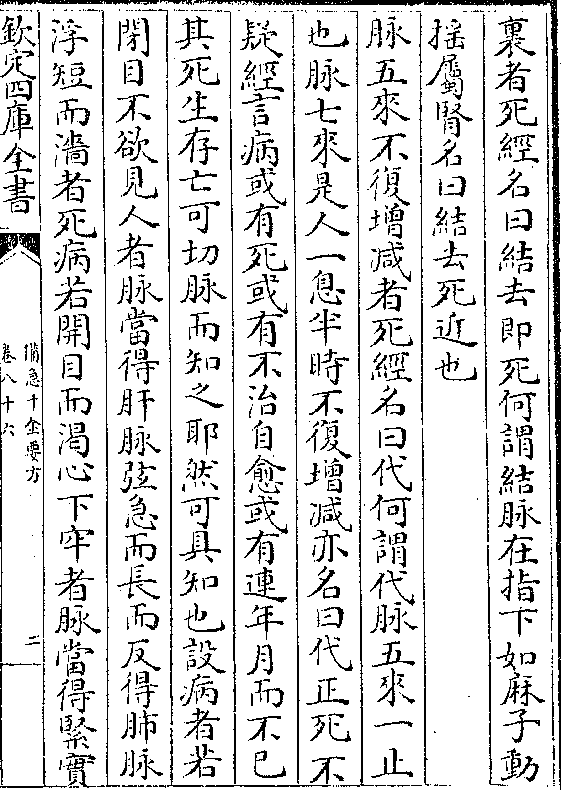 裏者死經名曰結去即死何謂結脉在指下如麻子動
揺屬腎名曰結去死近也
脉五來不復增減者死經名曰代何謂代脉五來一止
也脉七來是人一息半時不復增減亦名曰代正死不
疑經言病或有死或有不治自愈或有連年月而不已
其死生存亡可切脉而知之耶然可具知也設病者若
閉目不欲見人者脉當得肝脉弦急而長而反得肺脉
浮短而濇者死病若開目而渴心下牢者脉當得緊實
欽定四庫全書
備急千金要方
卷八十六
二